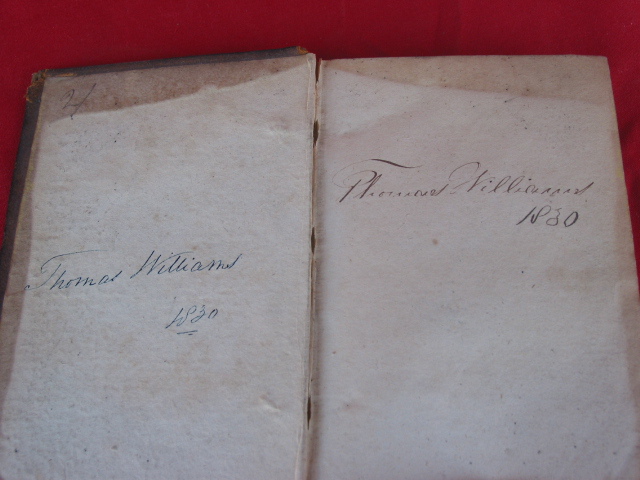 Thomas Williams
1830
Thomas Williams
1830